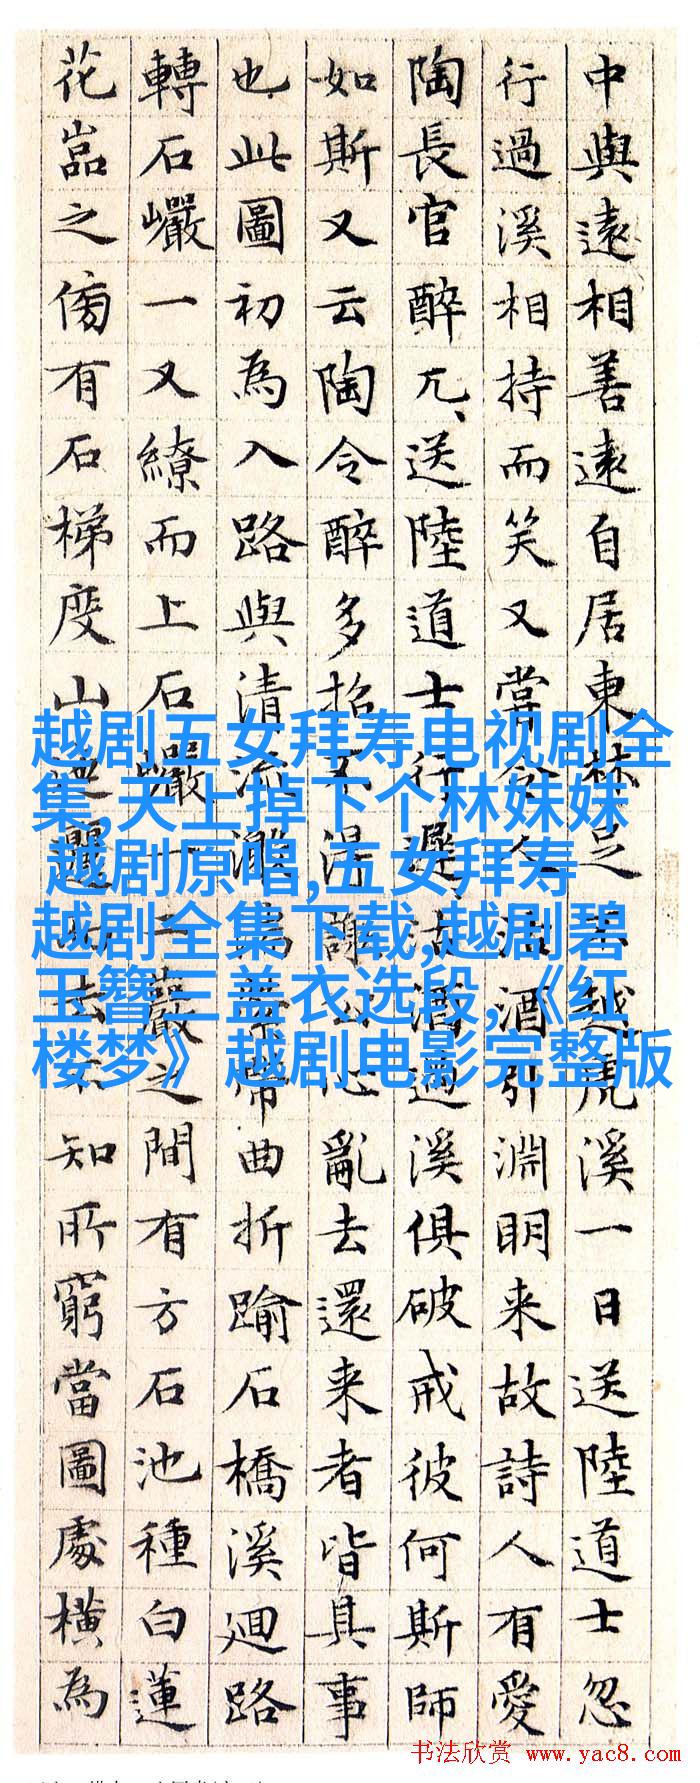 中與遠相善遠自居東林足不越虎溪一日送陸道士忽
行過溪相持而笑又嘗令人沽酒引淵明来故詩人有愛
陶長官醉兀、送陸道士行遲、沽酒過溪俱破戒彼何斯師
如斯又云陶令醉多招不得謝公心亂去還来者皆具事
也此圖初為入路與清流激湍縈帶曲折踰石橋溪迴路
轉石巖一又繚而上石巖一二巖之間有方石池種白蓮
花嵓之傍有石梯度山迤邐而去不知所窮當圖處橫為
越剧五女拜寿电视剧全
集,天上掉下个林妹妹
越剧原唱,五女拜寿
越剧全集下载,越剧碧
玉簪三盖衣选段,《红
楼梦》越剧电影完整版
书法欣赏 www.yac8.com